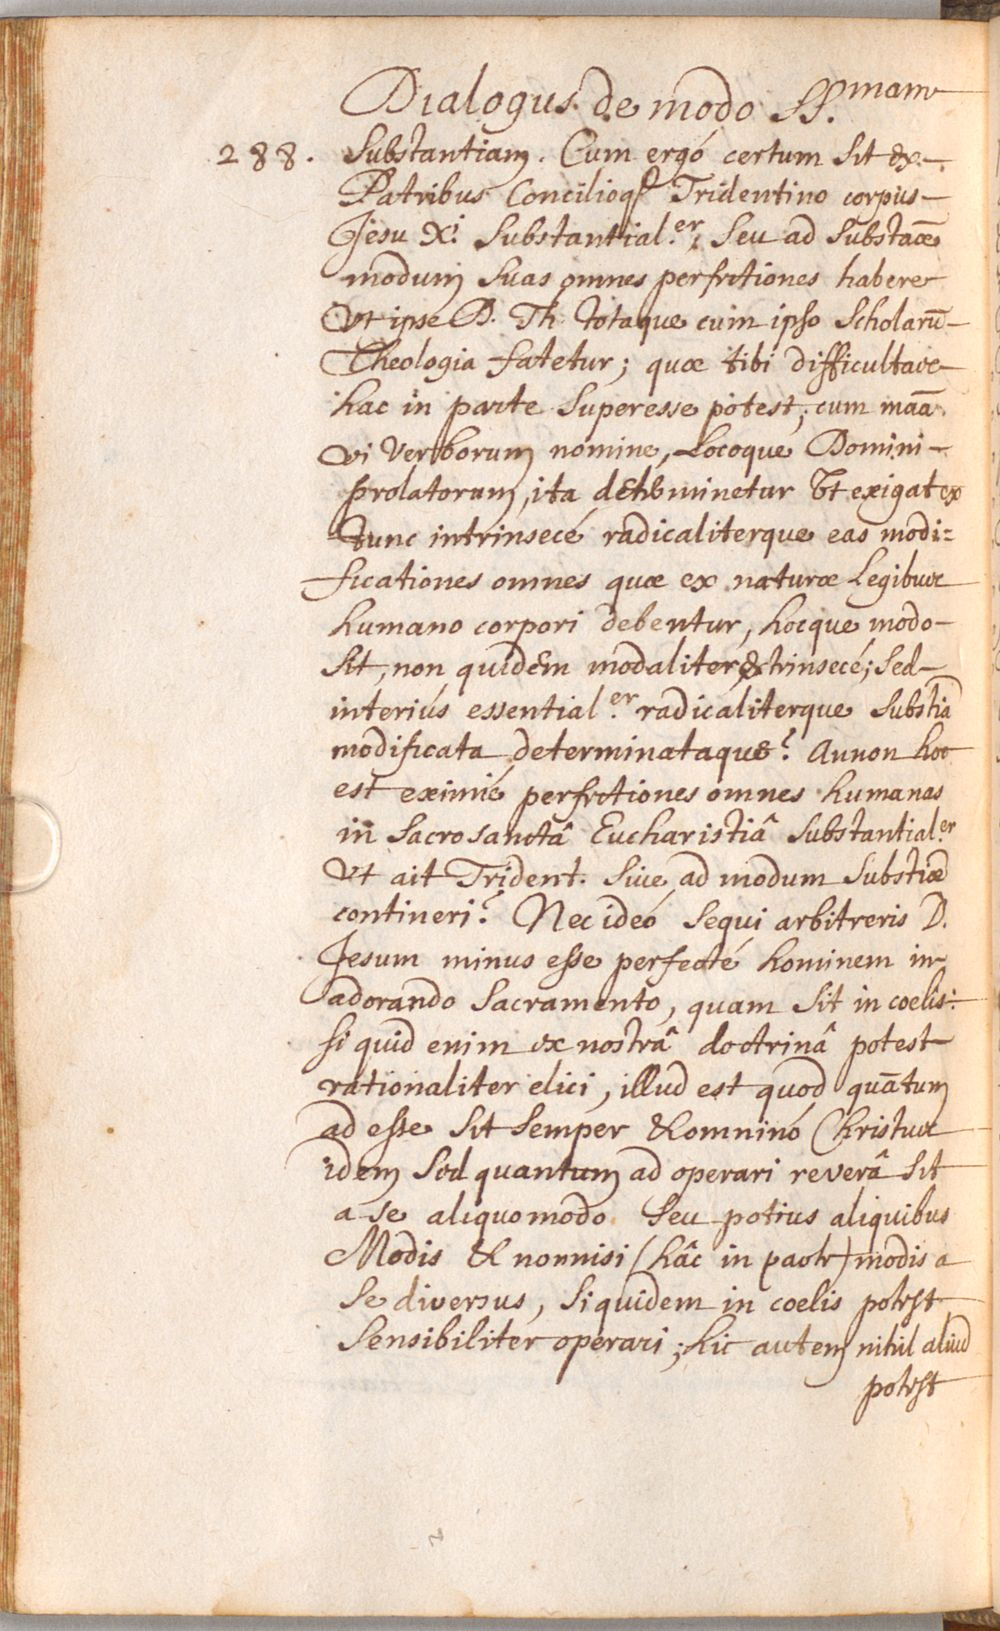 Dialogus de modo SS.mam
288. Substantiam. Cum ergó certum sit ex
Patribus Concilioq Tridentino corpus
Jesu Xi Substantial.er, seu ad Substãæ
modum suas omnes perfectiones habere
Vt ipse D. Th totaque cum ipso Scholarũ
Theologia fatetur; quæ tibi difficultatis
hac in parte superesse potest, cum mãã
vi Verborum nomine, Locoque Domini
prolatorum, ita determinetur Vt exigat ex
tunc intrinsecé radicaliterque eas modi=
ficationes omnes quæ ex naturæ Legibus
humano corpori debentur, hocque modo
sit, non quidem modaliter, extrinsecé; sed
interiús essential.er radicaliterque Substia
modificata determinataque? annon hoc
est eximié perfectiones omnes humanas
in Sacrosanctâ Eucharistiâ Substantial.er
Vt ait Trident. Siue ad modum Substiæ
contineri? Nec ideó sequi arbitreris D.
Jesum minus esse perfecté hominem in
adorando Sacramento, quam sit in coelis:
si quid enim ex nostrâ doctrinâ potest
rationaliter elici, illud est quod quãtum
ad esse sit semper & omninó Christus
idem sed quantum ad operari reverâ sit
a se aliquomodo seu potius aliquibus
Modis & nonnisi (hâc in parte) modis a
se diversus, siquidem in coelis potest
sensibiliter operari; hic autem nihil aliud
potest